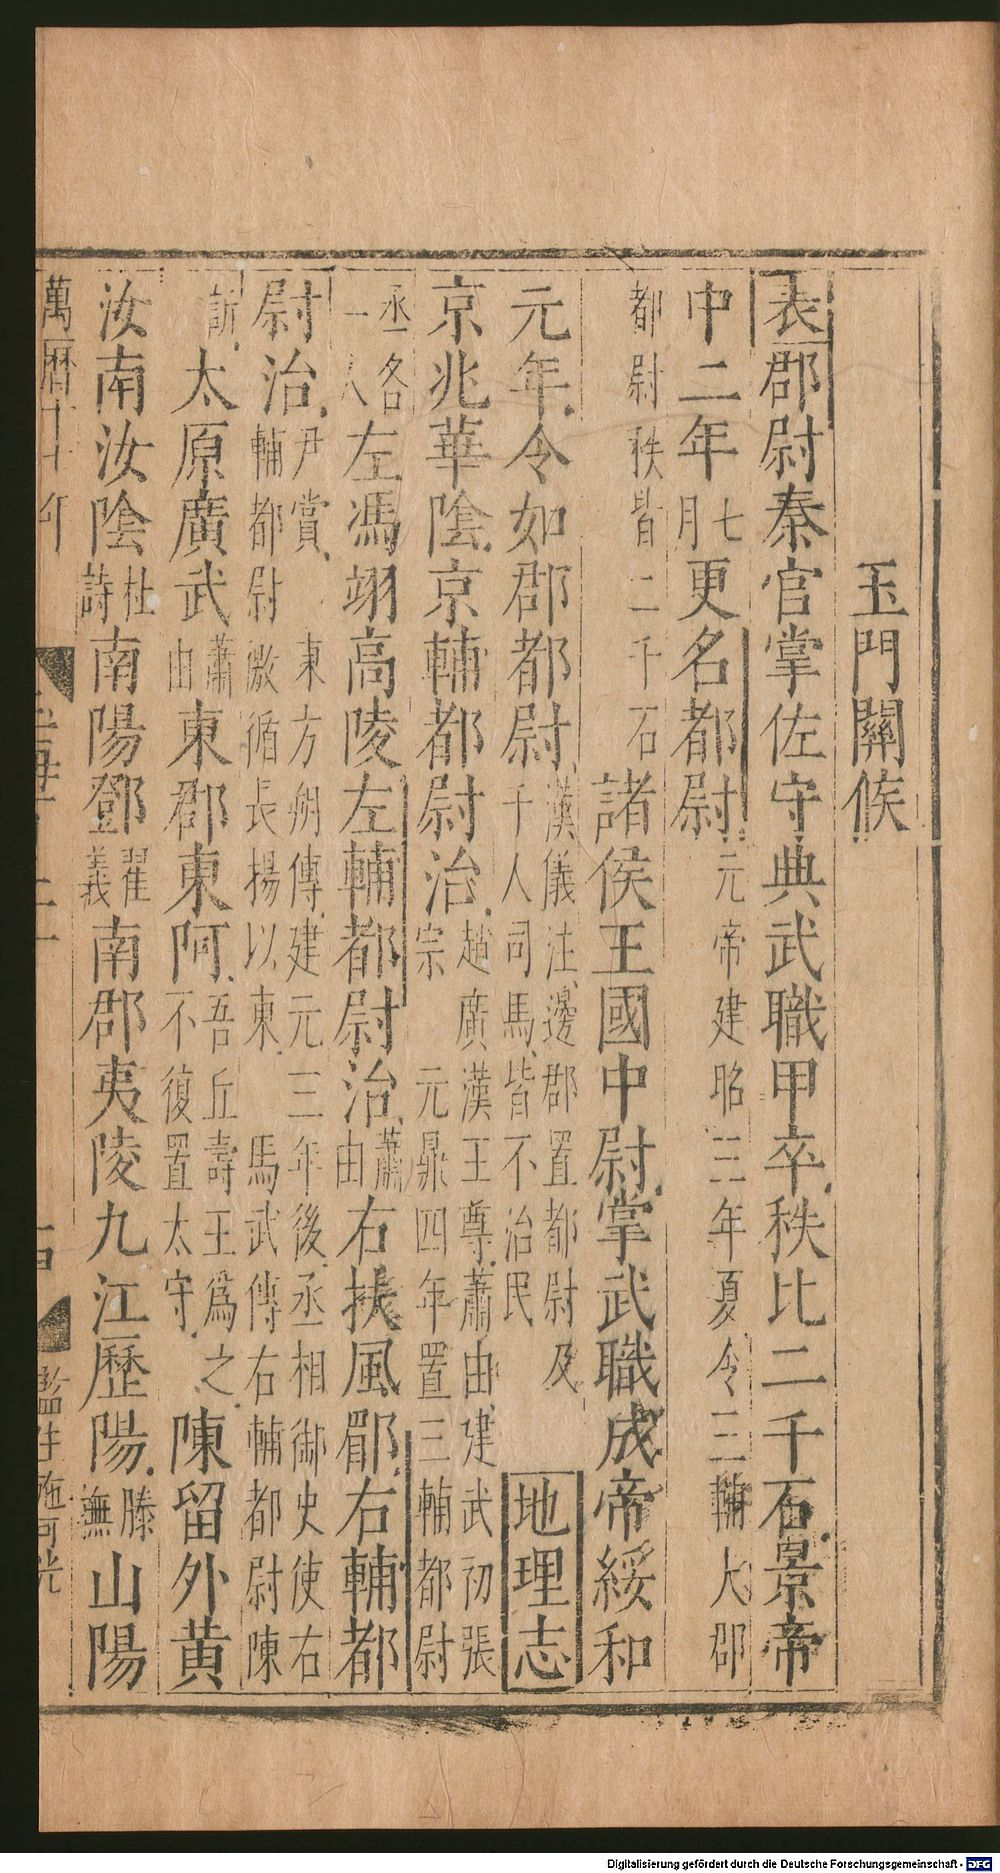 玉門關候
表郡尉秦官掌佐守典武職甲卒秩比二千石景帝
中二年七月更名都尉元帝建昭三年夏令三輔大郡
都尉秩皆二千石諸侯王國中尉掌武職成帝綏和
元年令如郡都尉漢儀注邊郡置都尉及千人司馬皆不治民地理志
京兆華陰京輔都尉治趙廣漢王尊蕭由建武初張宗元鼎四年置三輔都尉
丞各一人左馮翊高陵左輔都尉治蕭由右扶風郿右輔都
尉治尹賞東方朔傳建元三年後丞相御史使右輔都尉徼循長揚以東馬武傳右輔都尉陳
訢太原廣武蕭由東郡東阿吾丘壽王為之不復置太守陳留外黃
汝南汝陰杜詩南陽鄧翟義南郡夷陵九江歷陽滕撫山陽
萬曆
監生施可光
Digitalisierung gefördert durch die Deutsche Forschungsgemeinschaft - DFG